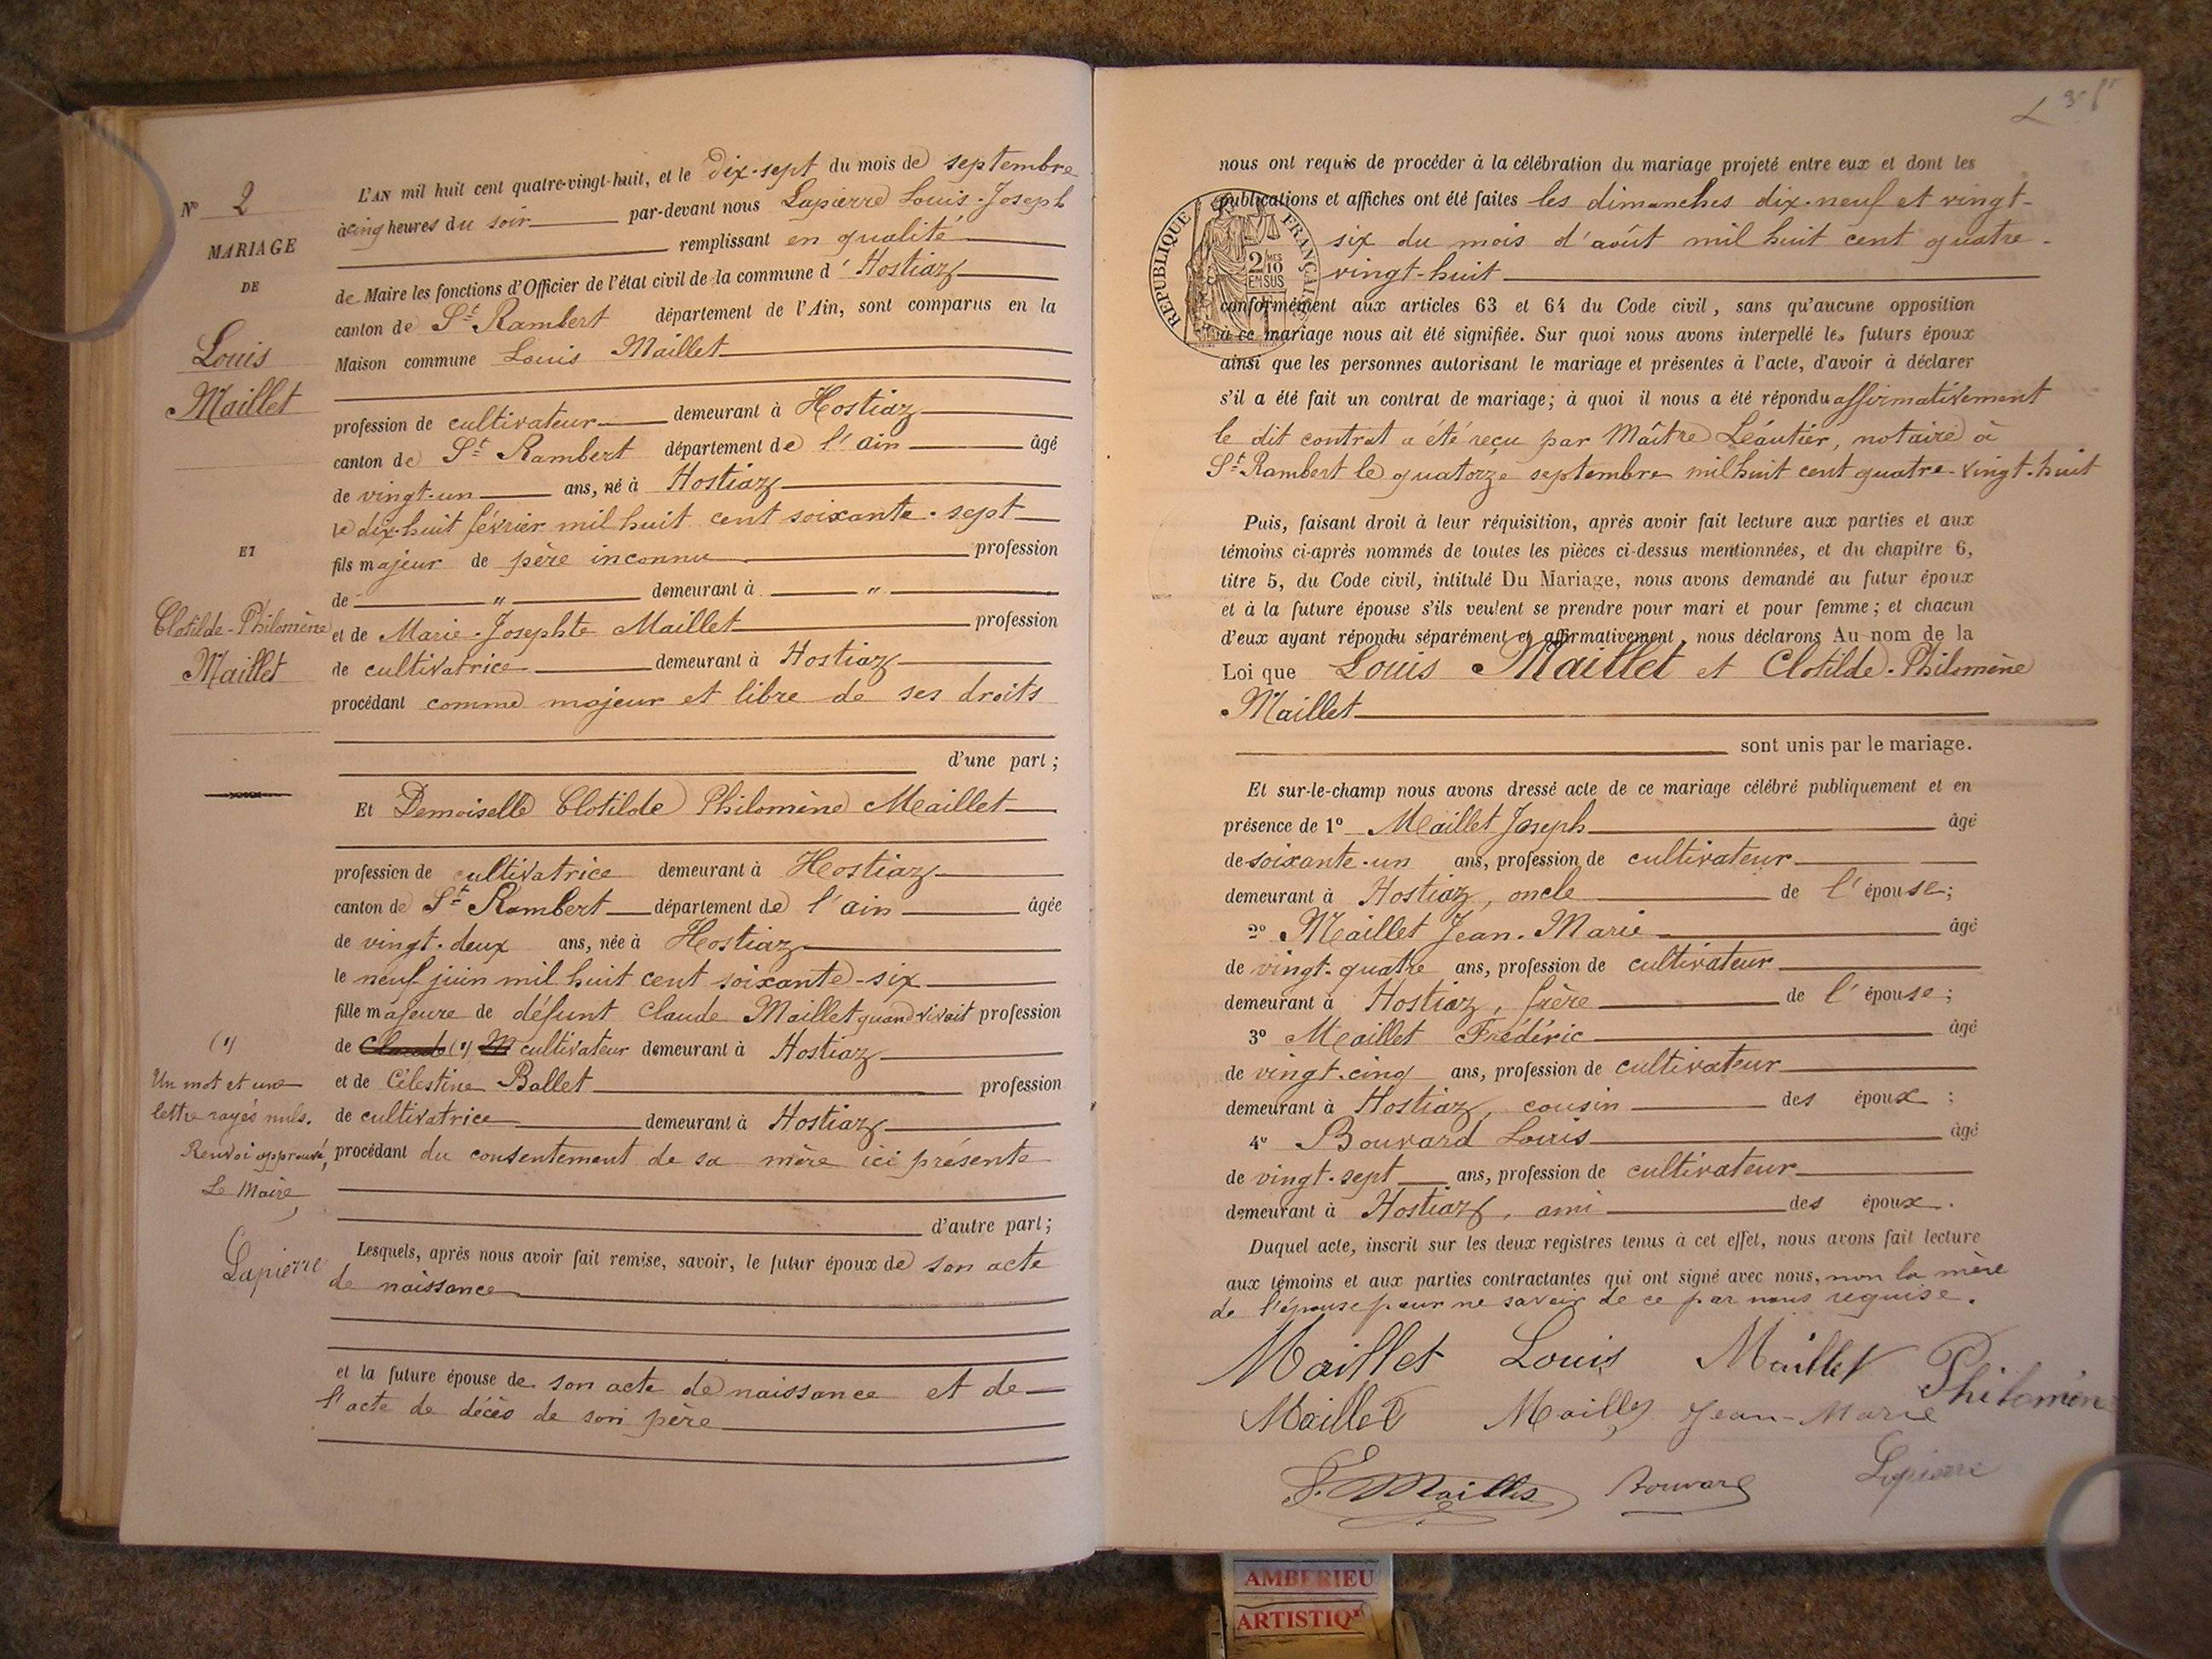 N° 2
MARIAGE
DE
Louis
Maillet
ET
Clotilde-Philomène
Maillet
(1)
Un mot et une
lettre rayés nuls.
Renvoi approuvé,
Le Maire,
Lapierre
L'AN mil huit cent quatre-vingt-huit, et le dix-sept du mois de septembre
à cinq heures du soir par-devant nous Lapierre Louis-Joseph
remplissant en qualité
de Maire les fonctions d'Officier de l'état civil de la commune d'Hostiaz
canton de St Rambert département de l'Ain, sont comparus en la
Maison commune Louis Maillet
profession de cultivateur demeurant à Hostiaz
canton de St Rambert département de l'ain âgé
de vingt-un ans, né à Hostiaz
le dix-huit février mil huit cent soixante-sept
fils majeur de père inconnu profession
de " demeurant à "
et de Marie-Josephte Maillet profession
de cultivatrice demeurant à Hostiaz
procédant comme majeur et libre de ses droits
d'une part ;
Et Demoiselle Clotilde Philomène Maillet
profession de cultivatrice demeurant à Hostiaz
canton de St Rambert département de l'ain âgée
de vingt-deux ans, née à Hostiaz
le neuf juin mil huit cent soixante-six
fille majeure de défunt Claude Maillet quand vivait profession
de Claude (1) M cultivateur demeurant à Hostiaz
et de Célestine Ballet profession
de cultivatrice demeurant à Hostiaz
procédant du consentement de sa mère ici présente
d'autre part ;
Lesquels, après nous avoir fait remise, savoir, le futur époux de son acte
de naissance
et la future épouse de son acte de naissance et de
l'acte de décès de son père
nous ont requis de procéder à la célébration du mariage projeté entre eux et dont les
publications et affiches ont été faites les dimanches dix-neuf et vingt-
six du mois d'août mil huit cent quatre-
vingt-huit
REPUBLIQUE FRANÇAISE
2 MES
10
EN SUS
conformément aux articles 63 et 64 du Code civil, sans qu'aucune opposition
à ce mariage nous ait été signifiée. Sur quoi nous avons interpellé les futurs époux
ainsi que les personnes autorisant le mariage et présentes à l'acte, d'avoir à déclarer
s'il a été fait un contrat de mariage; à quoi il nous a été répondu affirmativement
le dit contrat a été reçu par Maître Léautier, notaire à
St Rambert le quatorze septembre mil huit cent quatre-vingt-huit
Puis, faisant droit à leur réquisition, après avoir fait lecture aux parties et aux
témoins ci-après nommés de toutes les pièces ci-dessus mentionnées, et du chapitre 6,
titre 5, du Code civil, intitulé Du Mariage, nous avons demandé au futur époux
et à la future épouse s'ils veulent se prendre pour mari et pour femme; et chacun
d'eux ayant répondu séparément et affirmativement, nous déclarons Au nom de la
Loi que Louis Maillet et Clotilde-Philomène
Maillet
sont unis par le mariage.
Et sur-le-champ nous avons dressé acte de ce mariage célébré publiquement et en
présence de 1° Maillet Joseph âgé
de soixante-un ans, profession de cultivateur
demeurant à Hostiaz, oncle de l'épouse;
2° Maillet Jean-Marie âgé
de vingt-quatre ans, profession de cultivateur
demeurant à Hostiaz, frère de l'épouse;
3° Maillet Frédéric âgé
de vingt-cinq ans, profession de cultivateur
demeurant à Hostiaz, cousin des époux ;
4° Bouvard Louis âgé
de vingt-sept ans, profession de cultivateur
demeurant à Hostiaz, ami des époux.
Duquel acte, inscrit sur les deux registres tenus à cet effet, nous avons fait lecture
aux témoins et aux parties contractantes qui ont signé avec nous, non la mère
de l'épouse pour ne savoir de ce par nous requise.
Maillet Louis Maillet Philomène
Maillet Maillet Jean-Marie
F. Maillet Bouvard Lapierre
AMBERIEU
ARTISTIQ